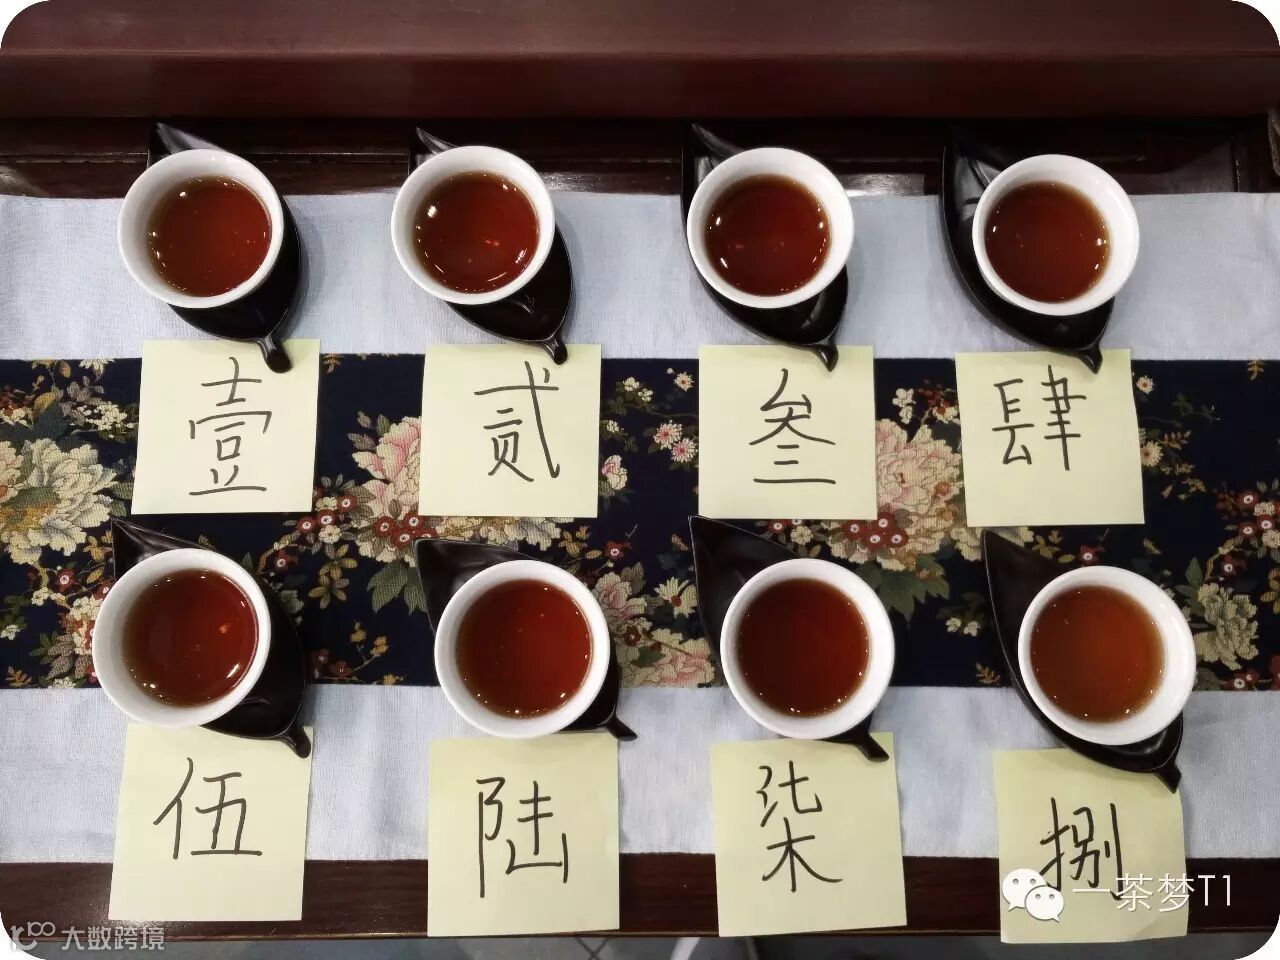 壹
贰
叁
肆
伍
陆
柒
捌
一茶梦T1
大数跨境